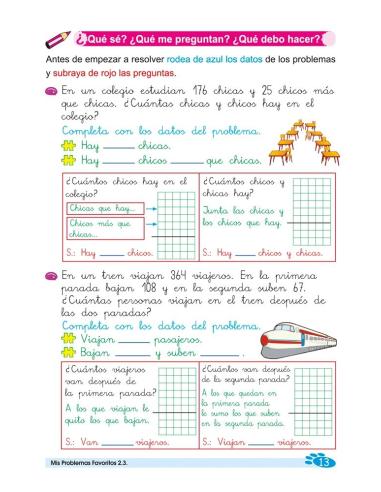 ¿Qué sé? ¿Qué me preguntan? ¿Qué debo hacer?
Antes de empezar a resolver rodea de azul los datos de los problemas
y subraya de rojo las preguntas.
En un colegio estudian 176 chicas y 25 chicos más
que chicas. ¿Cuántas chicas y chicos hay en el
colegio?
Completa con los datos del problema.
Hay ______ chicas.
Hay ______ chicos ______ que chicas.
¿Cuántos chicos hay en el
colegio?
Chicas que hay...
Chicos más que
chicas...
S.: Hay ____ chicos.
¿Cuántos chicos y
chicas hay?
Junta las chicas y
los chicos que hay.
S.: Hay ____ chicos y chicas.
En un tren viajan 364 viajeros. En la primera
parada bajan 108 y en la segunda suben 67.
¿Cuántas personas viajan en el tren después de
las dos paradas?
Completa con los datos del problema.
Viajan ______ pasajeros.
Bajan ______ y suben ______.
¿Cuántos viajeros
van después de
la primera parada?
A los que viajan le
quito los que bajan.
S.: Van ____ viajeros.
¿Cuántos van después
de la segunda parada?
A los que quedan en
la primera parada
le sumo los que suben
en la segunda parada.
S.: Viajan ____ viajeros.
Mis Problemas Favoritos 2.3.
13